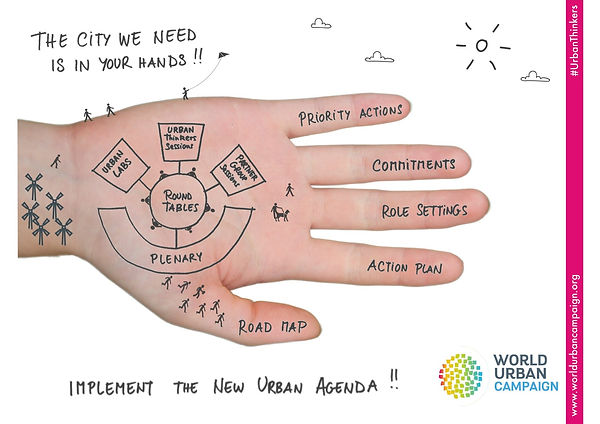 THE CITY WE NEED
IS IN YOUR HANDS !!
URBAN
Thinkers
Sessions
URBAN
LABS
PARTNER
GROUP
Sessions
ROUND
TABLES
PLENARY
PRIORITY ACTIONS
COMMITMENTS
ROLE SETTINGS
ACTION PLAN
ROAD MAP
IMPLEMENT THE NEW URBAN AGENDA !!
WORLD
URBAN
CAMPAIGN
#UrbanThinkers
www.worldurbancampaign.org